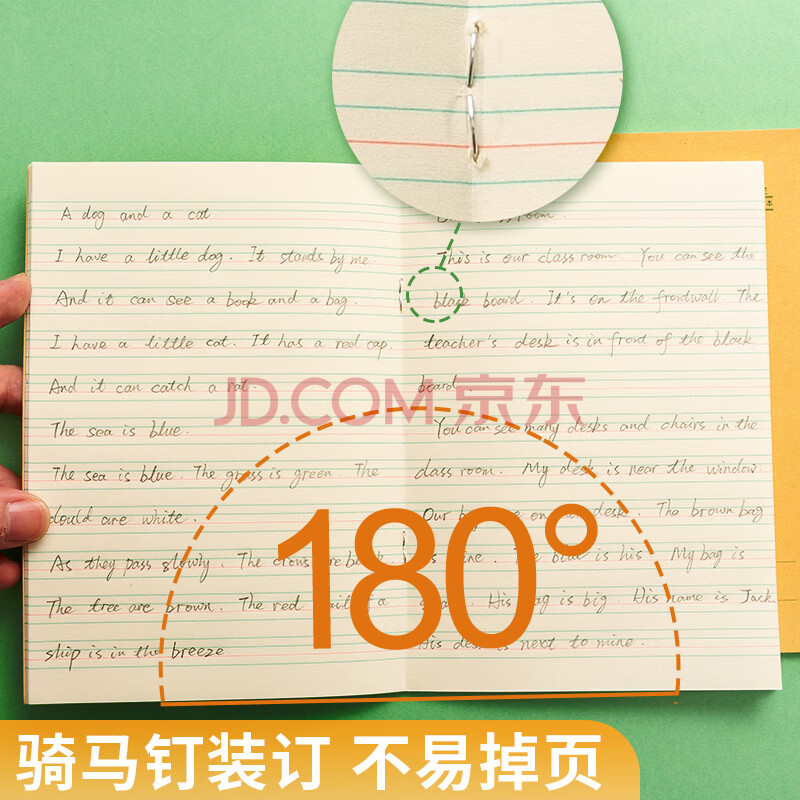 A dog and a cat.
I have a little dog. It stands by me.
And it can see a book and a bag.
I have a little cat. It has a red cap.
And it can catch a rat.
The sea is blue.
The sea is blue. The grass is green. The
clould are white.
As they pass slowly. The crows are back
The tree are brown. The red sail of a
ship is in the breeze.
room.
This is our class room. You can see the
black board. It's on the frontwall. The
teacher's desk is in front of the black
board.
You can see many desks and chairs in the
class room. My desk is near the window.
Our on desk. The brown bag
is mine. The blue is his. My bag is
His bag is big. His name is Jack.
His desk is next to mine.
JD.COM 京东
180°
骑马钉装订 不易掉页